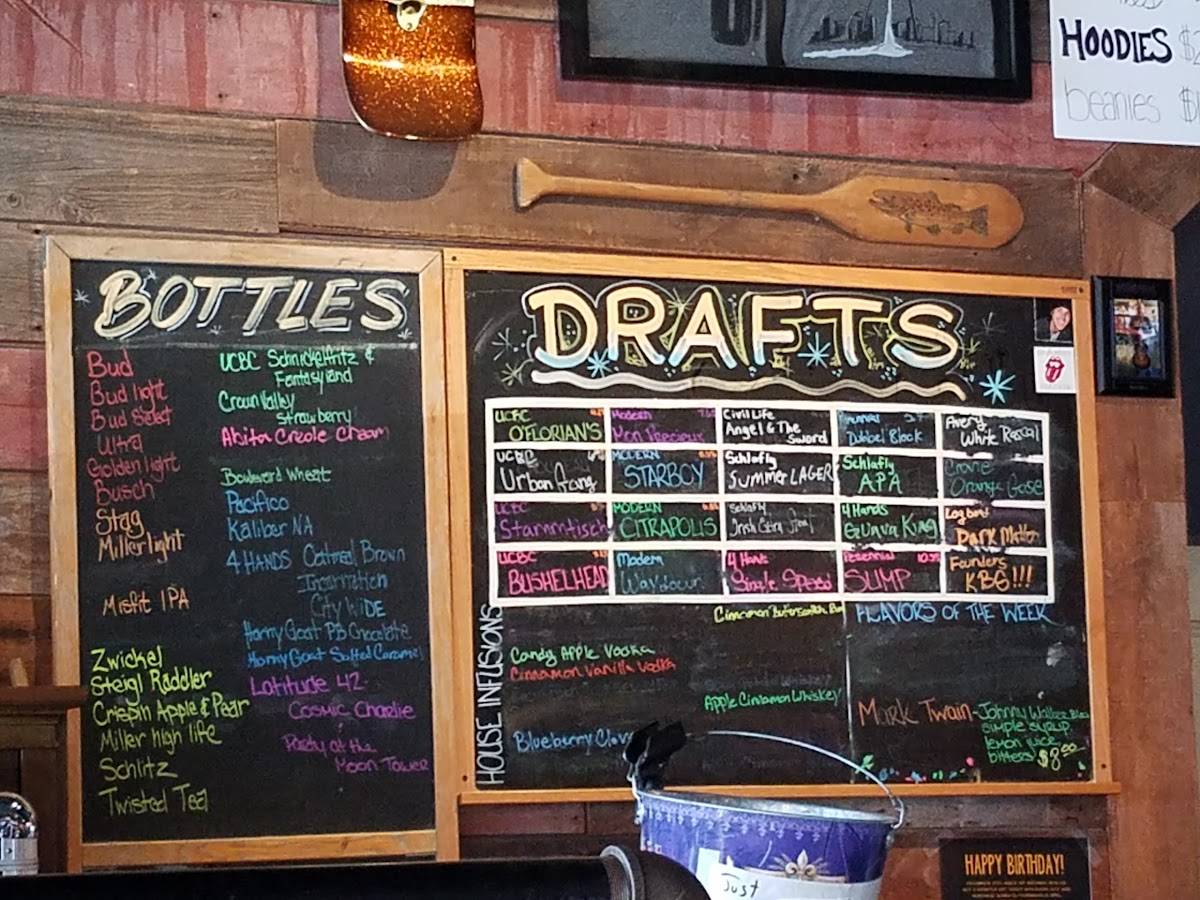 HOODIES
beanies
BOTTLES
Bud
Bud light
Bud Select
Ultra
Golden light
Busch
Stag
Miller light
Misfit IPA
Zwickel
Steigl Raddler
Crispin Apple & Pear
Miller high life
Schlitz
Twisted Tea
UCBC Schnickelfritz &
Fantasyland
Crown Valley
Strawberry
Abita Creole Cream
Boulevard Wheat
Pacifico
Kaliber NA
4 HANDS Oatmeal Brown
Incarnation
City WIDE
Horny Goat PB Chocolate
Horny Goat Salted Caramel
Latitude 42
Cosmic Charlie
Party at the
Moon Tower
DRAFTS
UCBC
O'FLORIAN'S
Modern
Mon Precieux
Civil Life
Angel & The
Sword
Dubbel Block
Avery
White Rascal
UCBC
Urban Fang
MODERN
STARBOY
Schlafly
SUMMER LAGER
Schlafly
APA
Orange Gose
UCBC
Stammtisch
MODERN
CITRAPOLIS
Schlafly
Irish Extra Stout
4 Hands
Guava King
Logboat
Dark Matter
UCBC
BUSHELHEAD
Modern
Waydown
4 Hands
Single Speed
Perennial
SUMP
Founders
KBS!!!
HOUSE INFUSIONS
Candy Apple Vodka
Cinnamon Vanilla Vodka
Blueberry
Cinnamon Butterscotch
Apple Cinnamon Whiskey
FLAVORS OF THE WEEK
Mark Twain - Johnny Walker
simple syrup
lemon juice
bitters $8.00
Just
HAPPY BIRTHDAY!